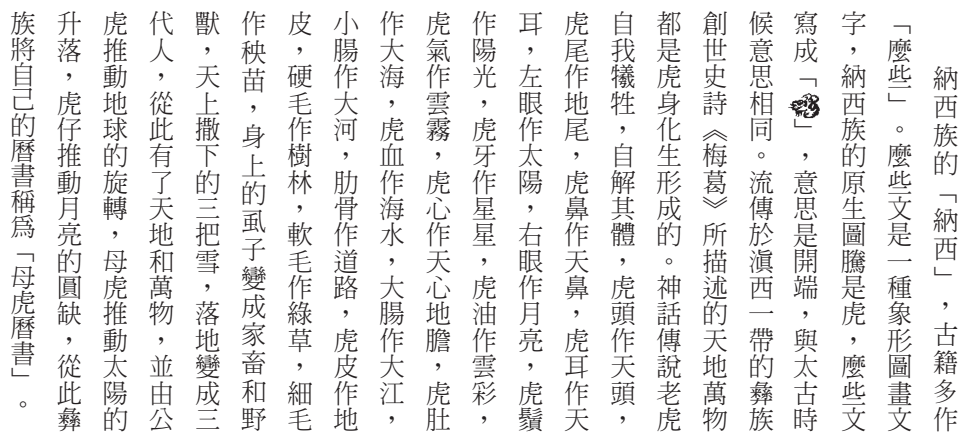 納西族的「納西」，古籍多作
「麼些」。麼些文是一種象形圖畫文
字，納西族的原生圖騰是虎，麼些文
寫成「」，意思是開端，與太古時
候意思相同。流傳於滇西一帶的彝族
創世史詩《梅葛》所描述的天地萬物
都是虎身化生形成的。神話傳說老虎
自我犧牲，自解其體，虎頭作天頭，
虎尾作地尾，虎鼻作天鼻，虎耳作天
耳，左眼作太陽，右眼作月亮，虎鬚
作陽光，虎牙作星星，虎油作雲彩，
虎氣作雲霧，虎心作天心地膽，虎肚
作大海，虎血作海水，大腸作大江，
小腸作大河，肋骨作道路，虎皮作地
皮，硬毛作樹林，軟毛作綠草，細毛
作秧苗，身上的虱子變成家畜和野
獸，天上撒下的三把雪，落地變成三
代人，從此有了天地和萬物，並由公
虎推動地球的旋轉，母虎推動太陽的
升落，虎仔推動月亮的圓缺，從此彝
族將自己的曆書稱爲「母虎曆書」。